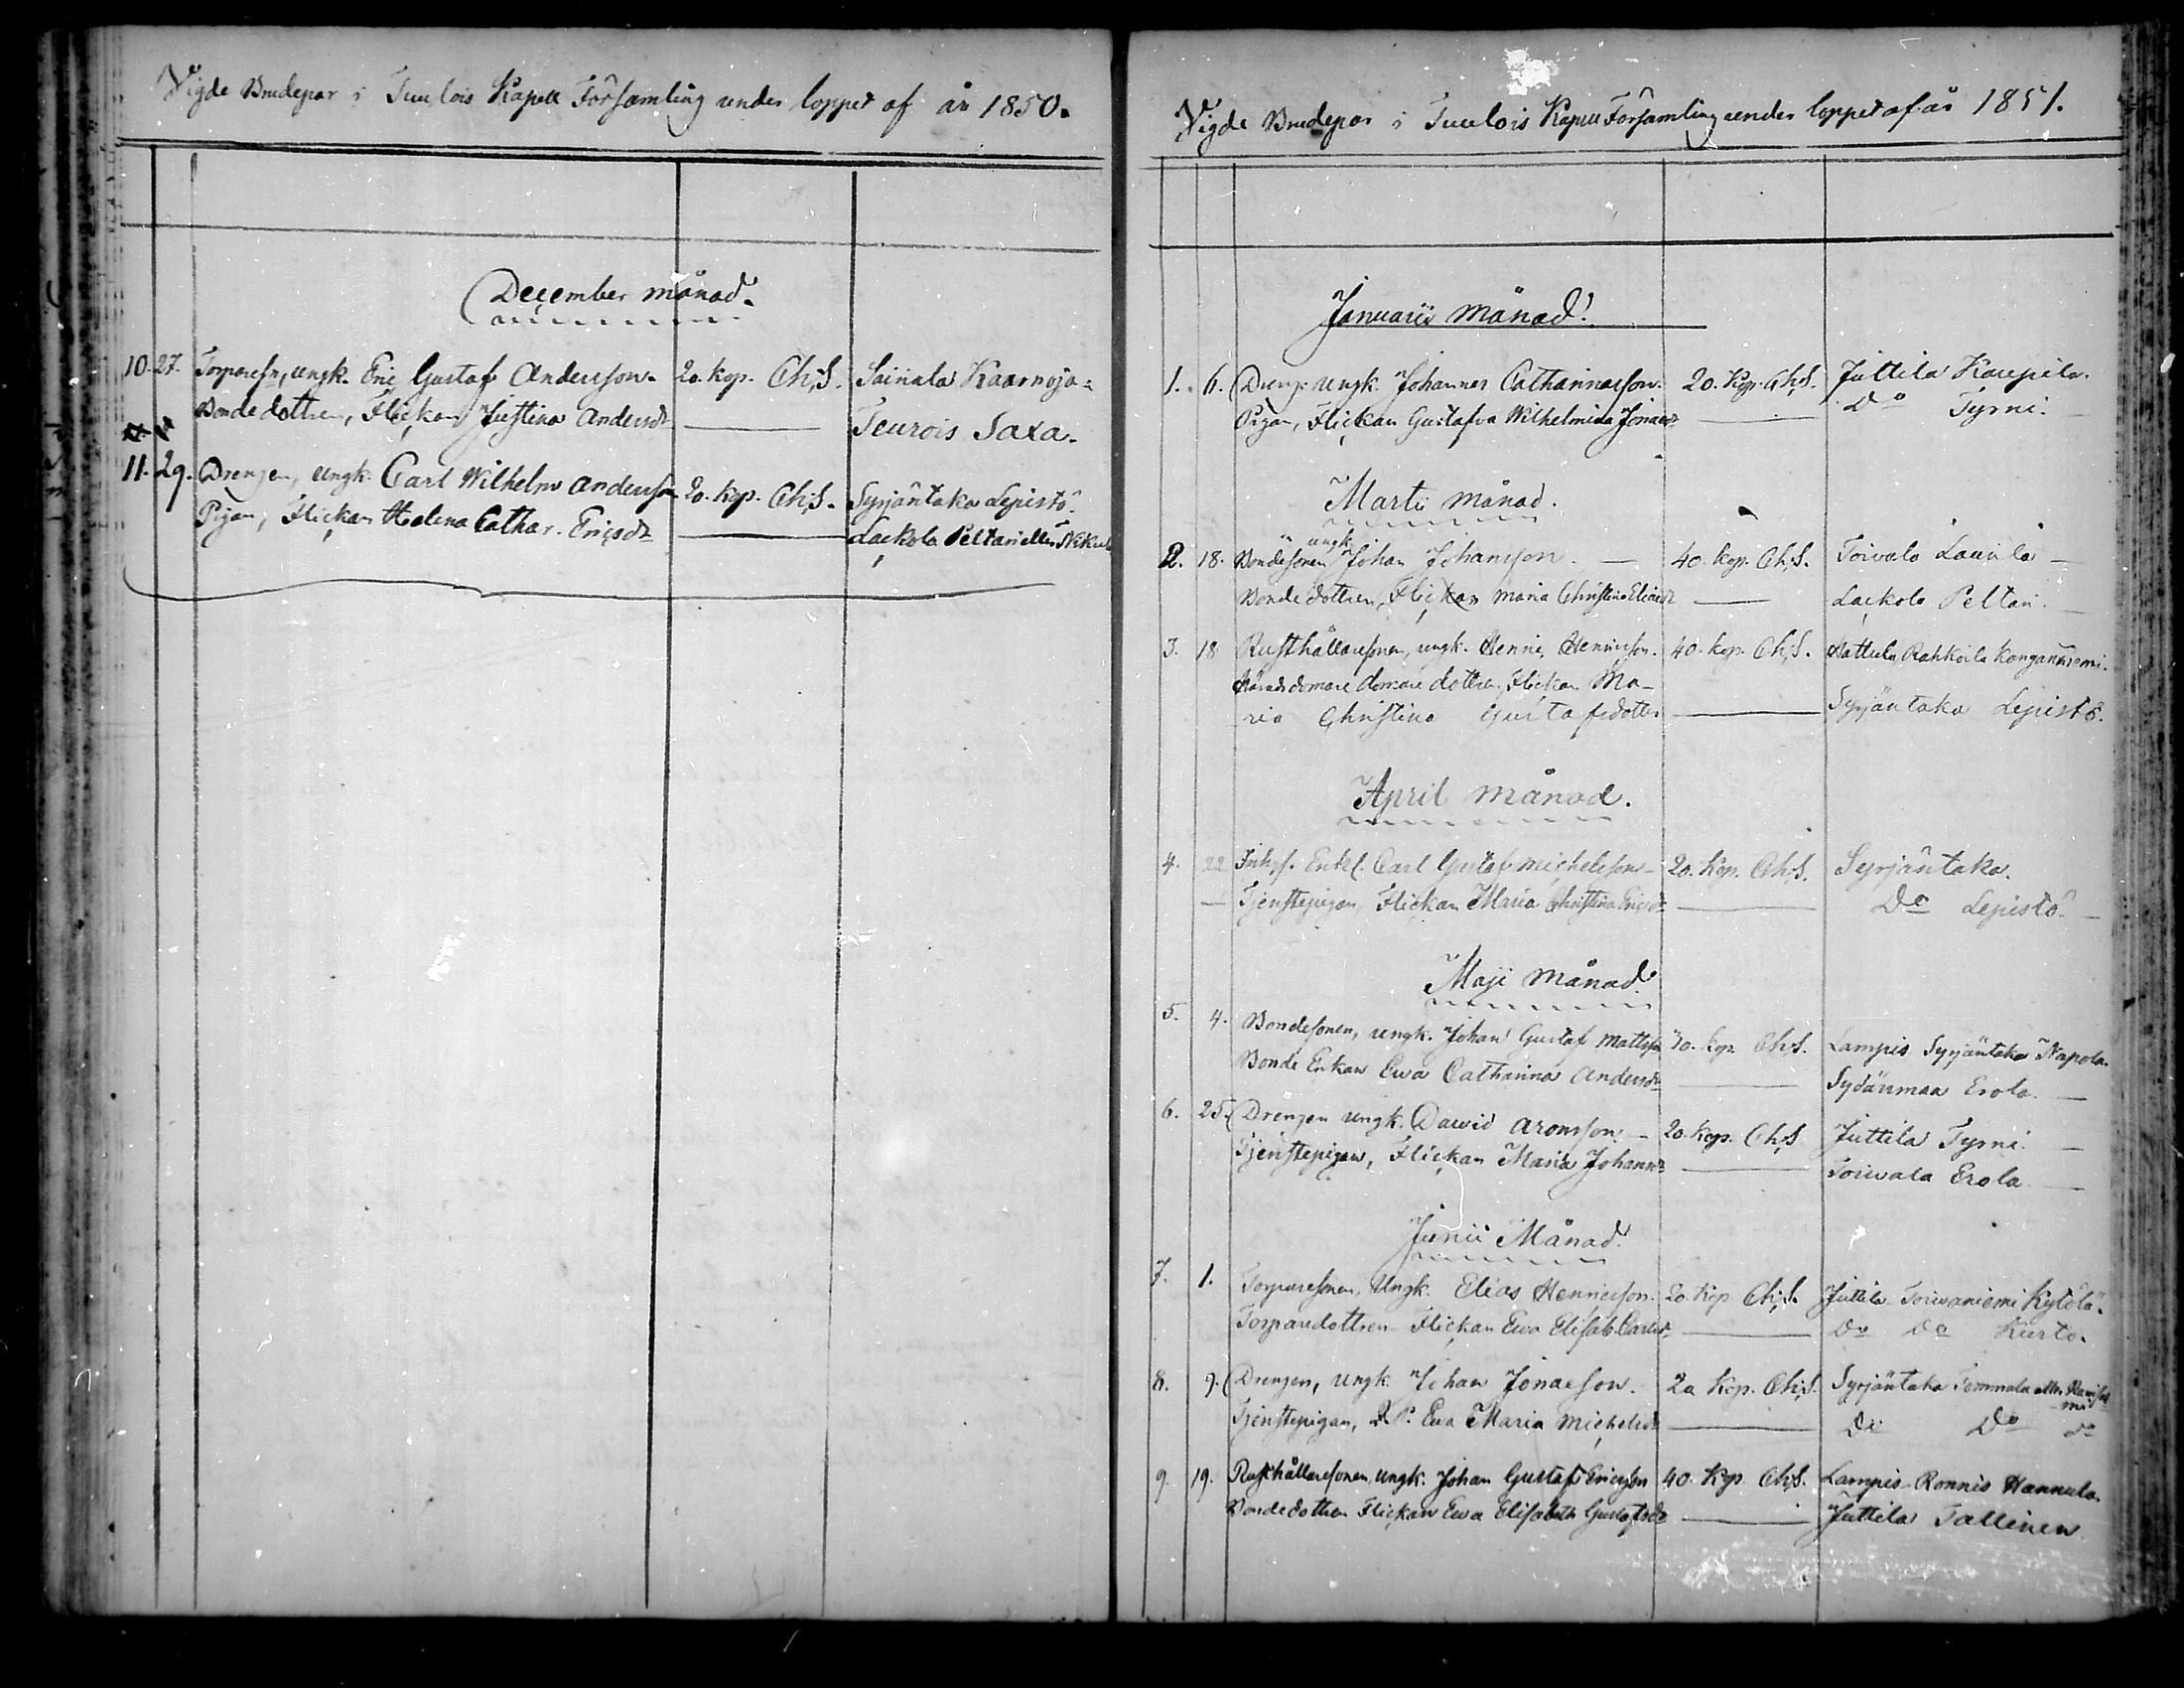 Vigde Brudepar i Tuulois Kapell Församling under loppet af år 1850.
December månad.
10. 27. Torparesn, ungk. Eric Gustaf Andersson. 20. kop. Ch;S. Sairiala Kaarnoja=
Bondedottren, Flickan Justina Andersdr Teurois Saxa.
11. 29. Drengen, ungk. Carl Wilhelm Andersson 20. Kop. Ch;S. Syrjäntaka Lepistö.
Pigan, Flickan Helena Cathar. Ericsdr Laekola Peltari eller
Vigde Brudepar i Tuulois Kapell Församling under loppet af år 1851.
Januarii månad.
1. 6. Dreng. ungk. Johannes Catharinaeson. 20. Kop. Ch;S. Juttila Kaupila.
Pigan, Flickan Gustafva Wilhelmina Jonaedr Do Tyrni.
Martii månad.
2. 18. Bondesonen ungk. Johan Johansson. 40. kop. Ch;S. Toivala Laurila
Bondedottren, Flickan Maria Christina Eliaedr Laekola Peltari.
3. 18 Rusthållaresonen, ungk. Henric Henricsson. 40. kop. Ch;S. Hattula Rahkoila Kanganniemi.
Häradsdomare dottren, Flickan Ma-
ria Christina Gustafsdotter Syrjäntaka Lepistö.
April månad.
4. 22 Inhys. Enkl. Carl Gustaf Michelsson 20. Kop. Ch;S. Syrjäntaka.
Tjenstepigan, Flickan Maria Christina Ericsdr Do Lepistö.
Maji månad
5. 4. Bondesonen, ungk. Johan Gustaf Mattsson kop. Ch;S. Lampis Syrjäntaka Napola.
Bonde Enkan Ewa Catharina Andersdr Sydänmaa Erola.
6. 25. Drengen ungk. David Aronsson. 20. kop. Ch;S Juttila Tyrni.
Tjenstepigan, Flickan Maria Johansdr Toivala Erola
Junii Månad.
7. 1. Torparesonen, Ungk. Elias Henricsson. 20. Kop Ch;S. Juttila Toivaniemi Kylölä.
Torparedottren Flickan Ewa Elisab. Carlsdr Do Do Kurto.
8. 9. Drengen, ungk. Johan Jonaeson. 20 Kop. Ch;S. Syrjäntaka Temmala eller
Tjenstepigan, Ewa Maria Michelsdr Do Do Do
9. 19. Rusthållaresonen, ungk. Johan Gustaf Ericsson 40. Kop. Ch;S. Lampis Ronnis Hannula.
Bondedottren Flickan Ewa Elisabeth Gustafsdr Juttila Tallinen